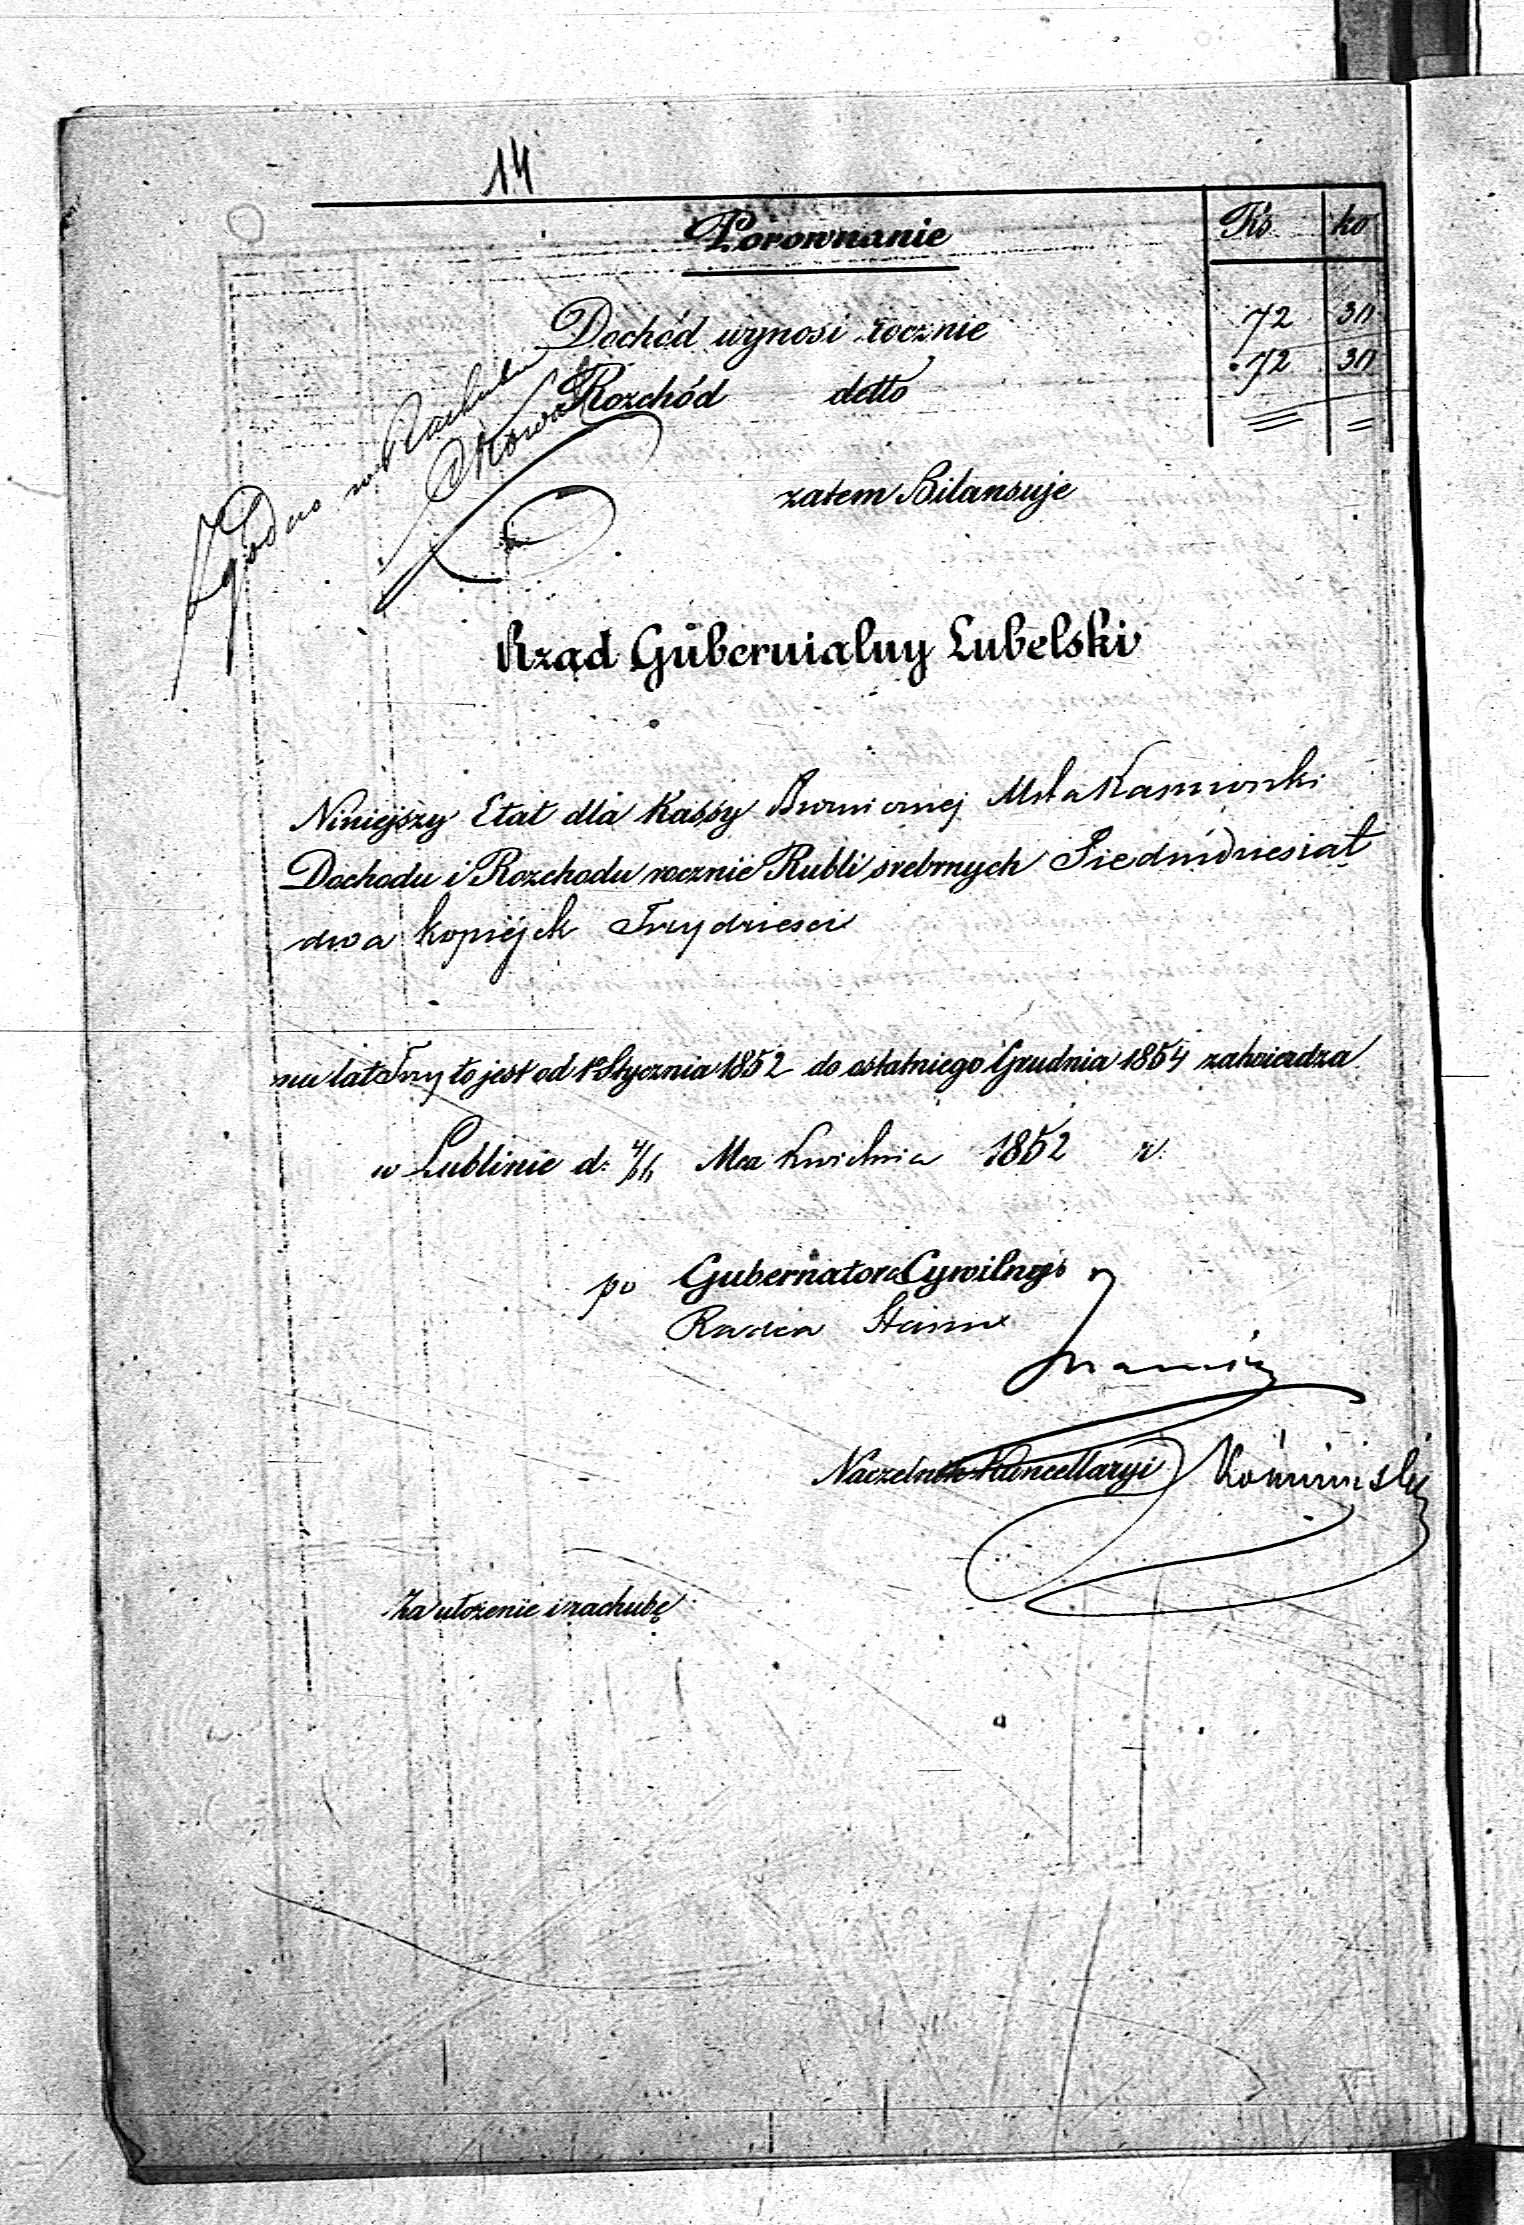 14
Porownanie Rs ko
Dochód wynosi rocznie 72 30
Rozchód detto 72 30
zatem Bilansuje
Zgodno w Rachubie
Rząd Gubernialny Lubelski
Niniejszy Etat dla Kassy Boznicznej Mta Kamionki
Dochodu i Rozchodu rocznie Rubli srebrnych Siedmdziesiąt
dwa kopiejek Trzydzieści
na lat Trzy to jest od 1o Stycznia 1852 do ostatniego Grudnia 1854 zatwierdza
w Lublinie d: 4/16 Mca Kwietnia 1852 r.
po Gubernatora Cywilnego
Radca Stanu
Naczelnik Kancellaryi
Za ułożenie i rachubę